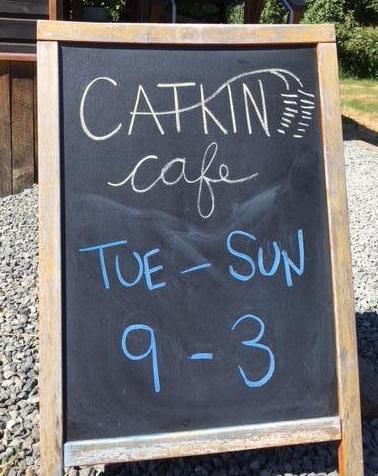 CATKIN
cafe
TUE - SUN
9 - 3